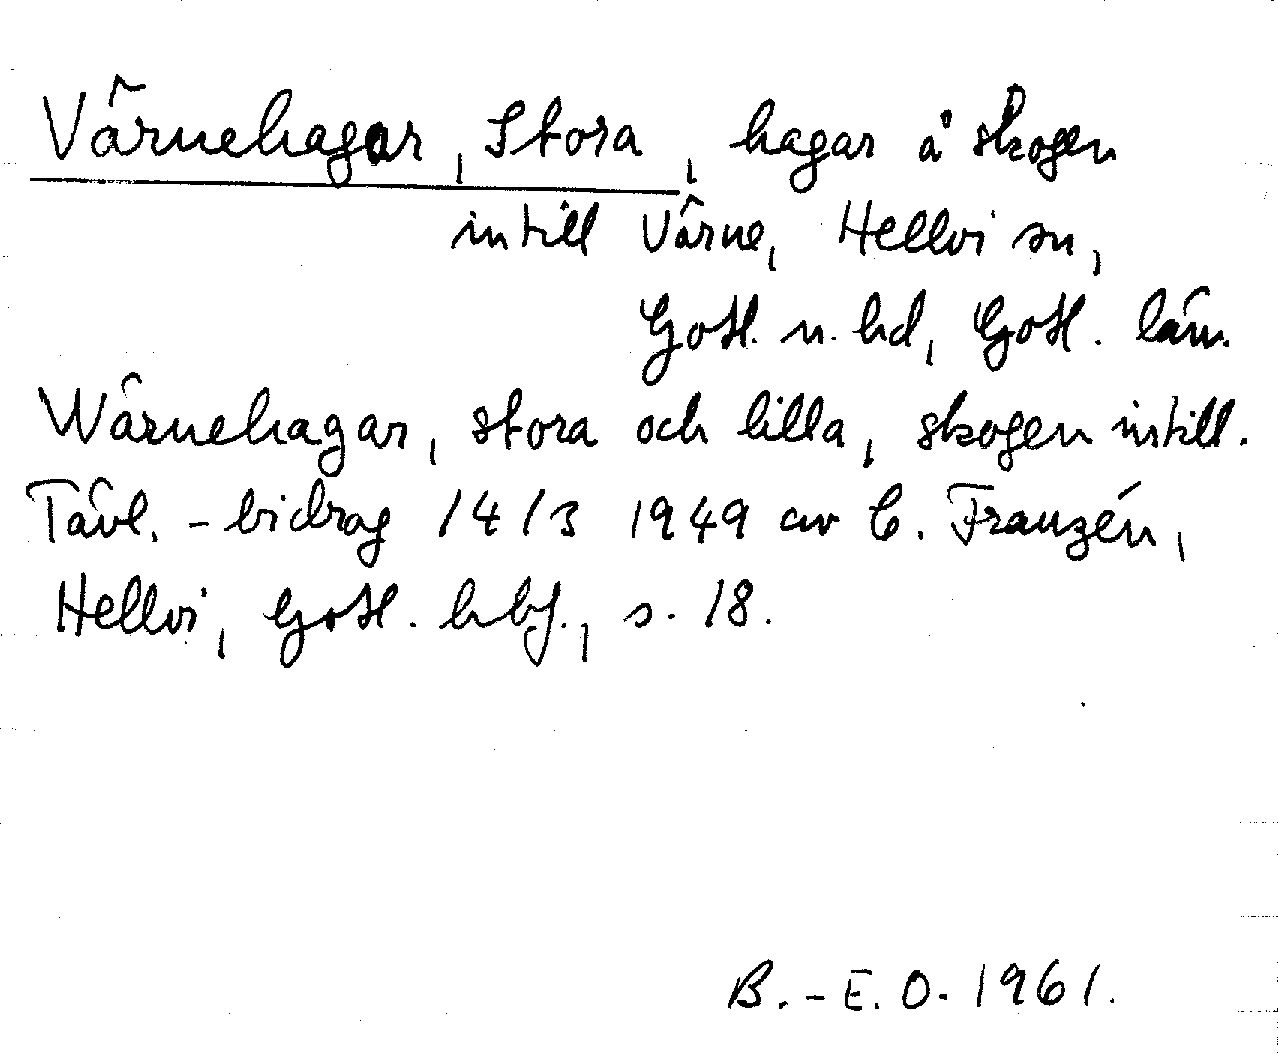 Värnehagar, Stora, hagar å skogen
intill Värne, Hellvi sn,
Gotl. n. hd, Gotl. län.
Wärnehagar, stora och lilla, skogen intill.
Tävl.-bidrag 14/3 1949 av C. Franzén,
Hellvi, Gotl. hbf., s. 18.
B.-E.O. 1961.